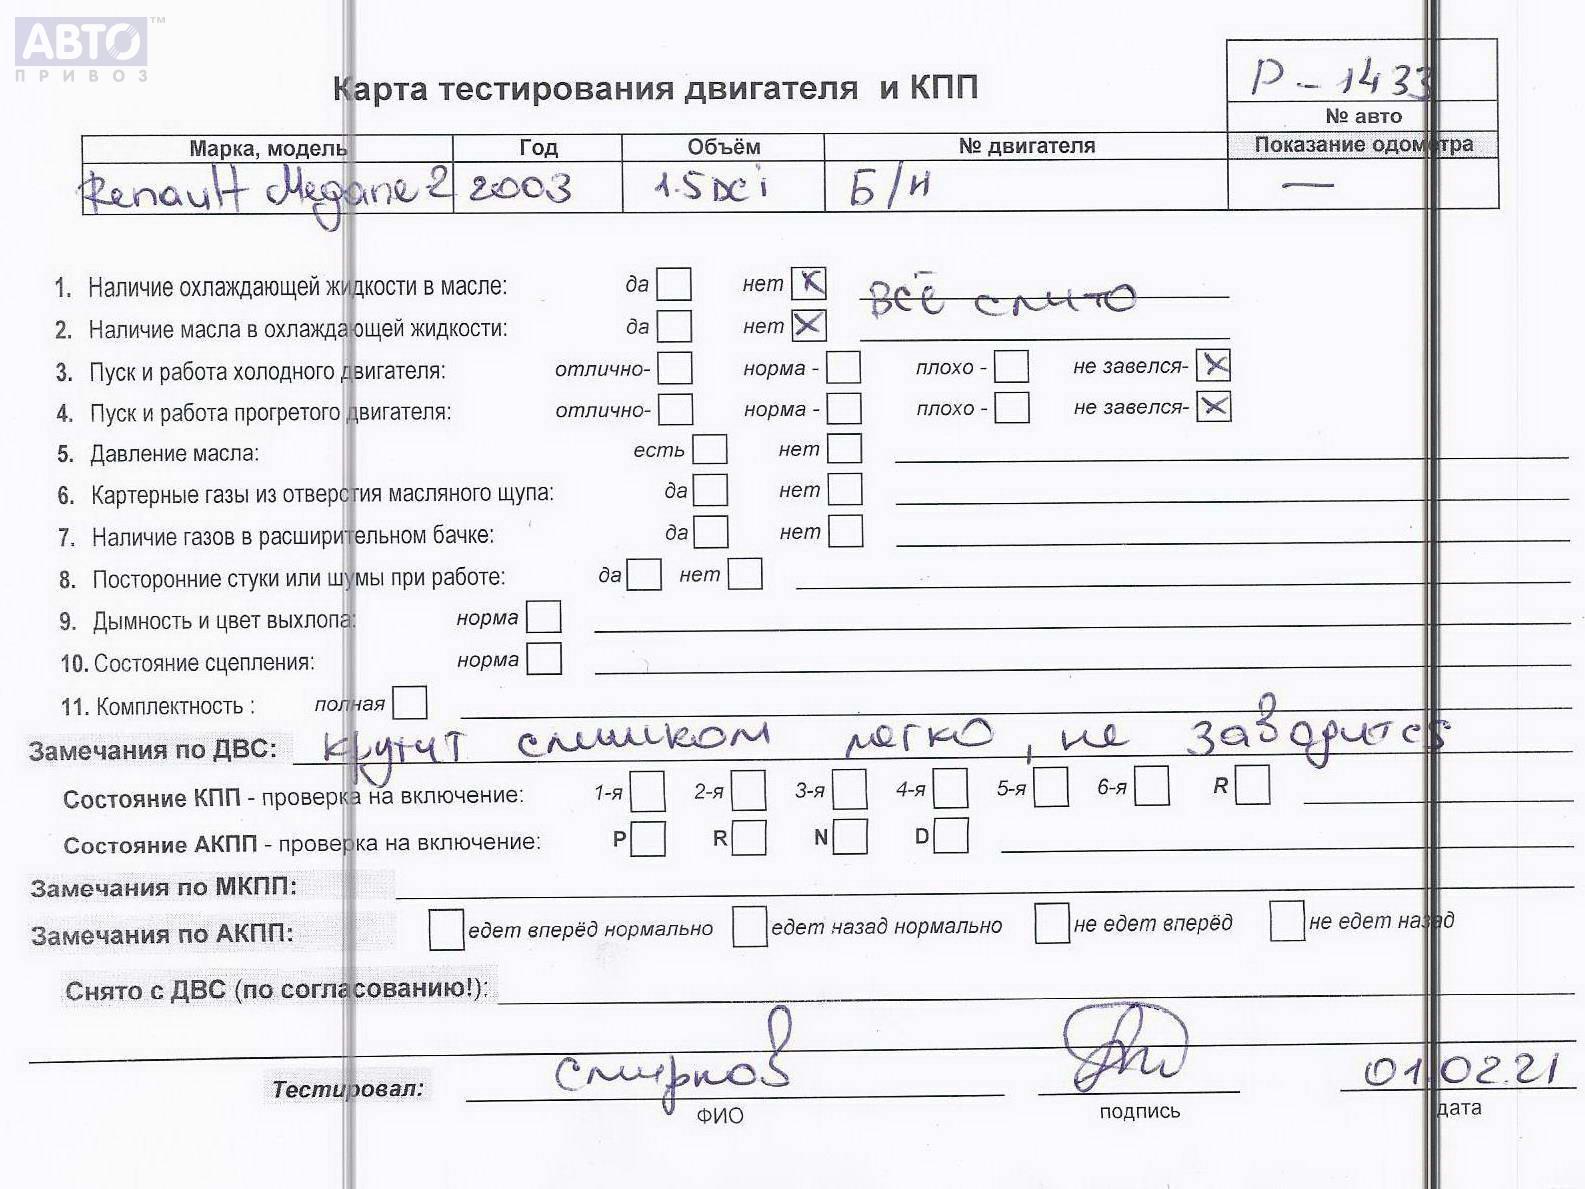 АВТО™
ПРИВОЗ
Карта тестирования двигателя и КПП
Р-1433
№ авто
Марка, модель Год Объём № двигателя Показание одометра
Renault Megane 2 2003 1.5 DCi Б/Н —
1. Наличие охлаждающей жидкости в масле: да нет X всё слито
2. Наличие масла в охлаждающей жидкости: да нет X
3. Пуск и работа холодного двигателя: отлично- норма - плохо - не завелся- X
4. Пуск и работа прогретого двигателя: отлично- норма - плохо - не завелся- X
5. Давление масла: есть нет
6. Картерные газы из отверстия масляного щупа: да нет
7. Наличие газов в расширительном бачке: да нет
8. Посторонние стуки или шумы при работе: да нет
9. Дымность и цвет выхлопа: норма
10. Состояние сцепления: норма
11. Комплектность : полная
Замечания по ДВС: крутит слишком легко, не заводится
Состояние КПП - проверка на включение: 1-я 2-я 3-я 4-я 5-я 6-я R
Состояние АКПП - проверка на включение: P R N D
Замечания по МКПП:
Замечания по АКПП: едет вперёд нормально едет назад нормально не едет вперёд не едет назад
Снято с ДВС (по согласованию!):
Тестировал: Смирнов 01.02.21
ФИО подпись дата